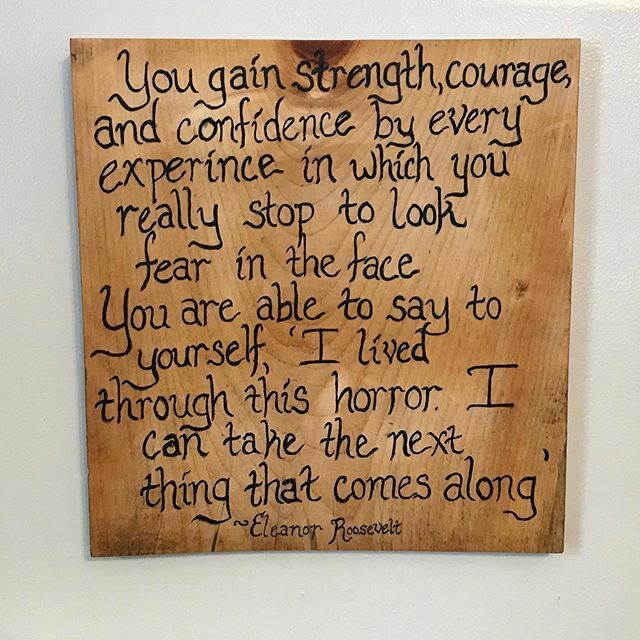 You gain strength, courage,
and confidence by every
experince in which you
really stop to look
fear in the face
You are able to say to
yourself, 'I lived
through this horror. I
can take the next
thing that comes along'
~Eleanor Roosevelt